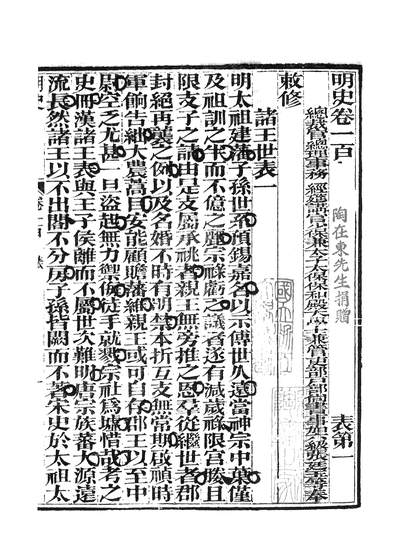 明史卷一百 表第一
陶在東先生捐贈
總裁官總理事務經筵講官少保兼太子太保保和殿大學士兼管吏部戶部尚書事加六級張廷玉等奉
敕修
諸王世表一
明太祖建藩子孫世系預錫嘉名以示傳世久遠當神宗中葉僅
及祖訓之半而不億之麗宗祿虧乏議者遂有減歲祿限宮媵且
限支子之請由是支屬承祧者親王無旁推之恩羣從繼世者郡
封絕再襲之例以及名婚不時有明禁本折互支無常期啟禎時
軍餉告絀大農蒿目安能顧贍藩維親王或可自存郡王以至中
尉空乏尤甚一旦盜起無力禦侮徒手就戮宗社為墟惜哉考之
史冊漢諸王表與王子侯離而不屬世次難明唐宗族蕃大源遠
流長然諸王以不出閤不分房子孫皆闕而不著宋史於太祖太